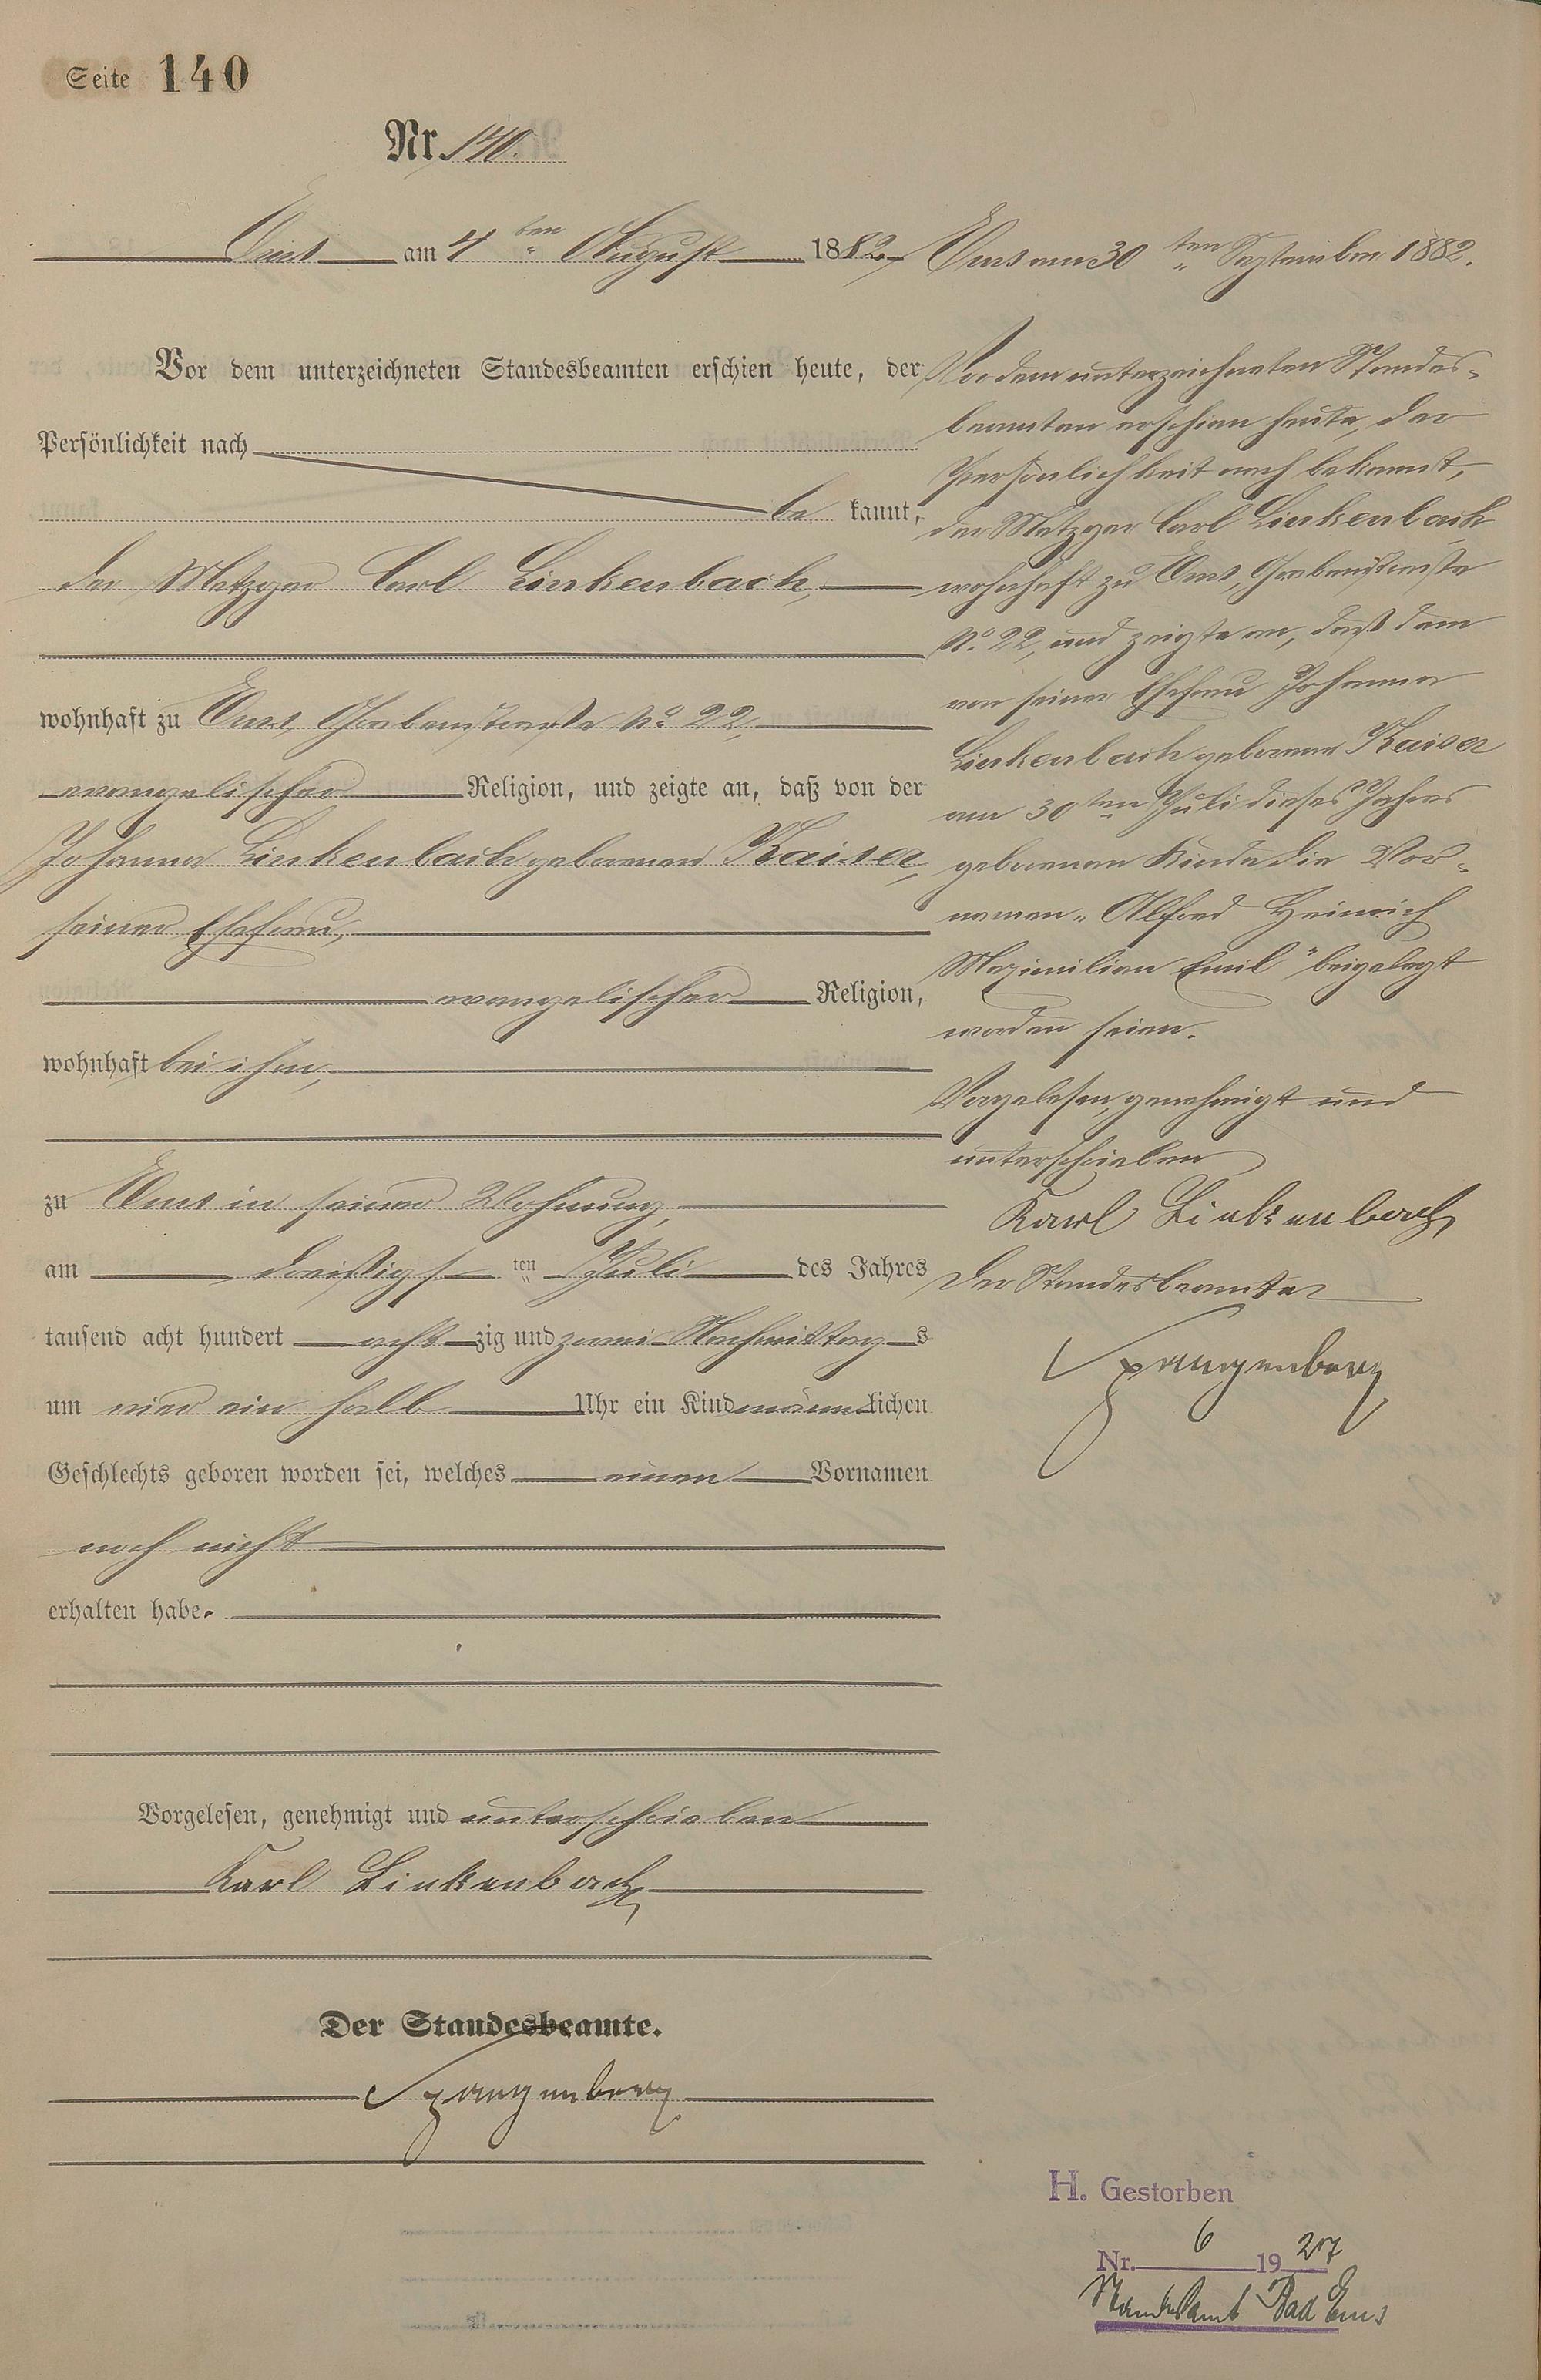 Seite 140
Nr. 140.
Ems am 4 ten August 1882
Vor dem unterzeichneten Standesbeamten erschien heute, der
Persönlichkeit nach
be kannt,
der Metzger Carl Linkenbach,
wohnhaft zu Ems, Grabenstraße No. 22,
evangelischer Religion, und zeigte an, daß von der
Johanna Linkenbach geborenen Kaiser,
seiner Ehefrau,
evangelischer Religion,
wohnhaft bei ihm,
zu Ems in seiner Wohnung,
am dreißigs ten Juli des Jahres
tausend acht hundert acht zig und zwei Nachmittag s
um vier ein halb Uhr ein Kind männ lichen
Geschlechts geboren worden sei, welches einen Vornamen
noch nicht
erhalten habe.
Vorgelesen, genehmigt und unterschrieben
Karl Linkenbach
Der Standesbeamte.
Spangenberg
Ems am 30 ten September 1882.
Vor dem unterzeichneten Standes-
beamten erschien heute, der
Persönlichkeit nach bekannt,
der Metzger Carl Linkenbach
wohnhaft zu Ems, Grabenstraße
No. 22, und zeigte an, daß dem
von seiner Ehefrau Johanna
Linkenbach geborene Kaiser
am 30ten Juli dieses Jahres
geborenen Kinde die Vor-
namen „Alfred Heinrich
Maximilian Emil" beigelegt
worden seien.
Vorgelesen, genehmigt und
unterschrieben
Karl Linkenbach
Der Standesbeamte
Spangenberg
H. Gestorben
Nr. 6 1927
Standesamt Bad Ems